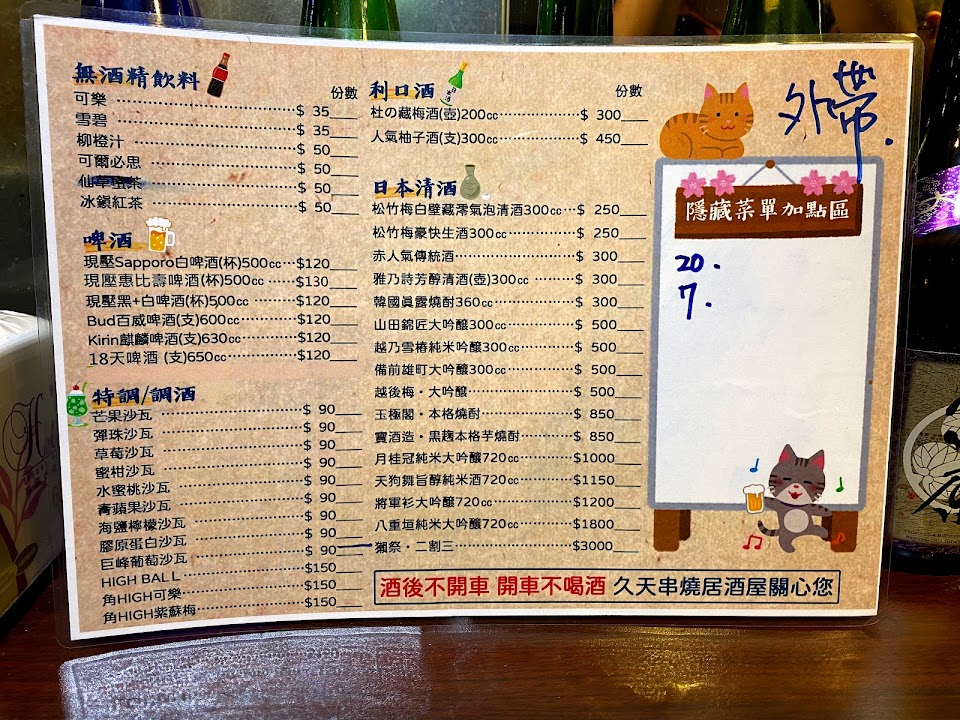 無酒精飲料
份數
可樂 $ 35
雪碧 $ 35
柳橙汁 $ 50
可爾必思 $ 50
仙草蜜茶 $ 50
冰鎮紅茶 $ 50
啤酒
現壓Sapporo白啤酒(杯)500cc $120
現壓惠比壽啤酒(杯)500cc $130
現壓黑+白啤酒(杯)500cc $120
Bud百威啤酒(支)600cc $120
Kirin麒麟啤酒(支)630cc $120
18天啤酒(支)650cc $120
特調/調酒
芒果沙瓦 $ 90
彈珠沙瓦 $ 90
草莓沙瓦 $ 90
蜜柑沙瓦 $ 90
水蜜桃沙瓦 $ 90
青蘋果沙瓦 $ 90
海鹽檸檬沙瓦 $ 90
膠原蛋白沙瓦 $ 90
巨峰葡萄沙瓦 $ 90
HIGH BALL $150
角HIGH可樂 $150
角HIGH紫蘇梅 $150
利口酒
份數
杜の藏梅酒(壺)200cc $ 300
人氣柚子酒(支)300cc $ 450
日本清酒
松竹梅白壁藏澪氣泡清酒300cc $ 250
松竹梅豪快生酒300cc $ 250
赤人氣傳統酒 $ 300
雅乃詩芳醇清酒(壺)300cc $ 300
韓國眞露燒酎360cc $ 300
山田錦匠大吟釀300cc $ 500
越乃雪椿純米吟釀300cc $ 500
備前雄町大吟釀300cc $ 500
越後梅・大吟釀 $ 500
玉極閣・本格燒酎 $ 850
寶酒造・黒麹本格芋燒酎 $ 850
月桂冠純米大吟釀720cc $1000
天狗舞旨醇純米酒720cc $1150
將軍衫大吟釀720cc $1200
八重垣純米大吟釀720cc $1800
獺祭・二割三 $3000
外帶.
隱藏菜單加點區
20.
7.
酒後不開車 開車不喝酒 久天串燒居酒屋關心您